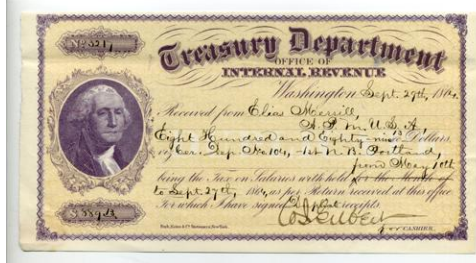 No. 321
Treasury Department
OFFICE OF
INTERNAL REVENUE
Washington Sept. 29th, 1864.
Received from Elias Merrill,
A.P.M. U.S.A.
Eight Hundred and Eighty nine Dollars,
Cer. Dep. No 104, 1st N.B. Portland,
from May 10th
being the Tax on Salaries withheld for the Month of
to Sept 27th 1864, as per Return received at this office
For which I have signed receipts
$889
CASHIER.